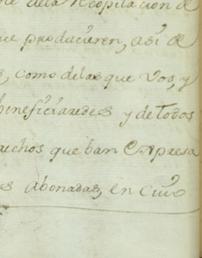 de la Recopilacion d
que produceren, asi d
s, como de las que vos, y
beneficiaredes y de todos
muchos que ban Expresa
es Abonadas, en cuio